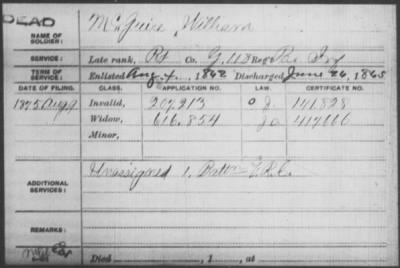 DEAD
NAME OF SOLDIER: McGuire, William
SERVICE: Late rank, Pt Co. G, 112 Reg't Pa Inf
TERM OF SERVICE: Enlisted Aug 4, 1862 Discharged June 26, 1865
DATE OF FILING. CLASS. APPLICATION NO. LAW. CERTIFICATE NO.
1875 Aug 9 Invalid, 207,213 141828
Widow, 616,854 417,116
Minor,
ADDITIONAL SERVICES: Unassigned 1, Batt V.R.C.
REMARKS:
Died , 1 , at